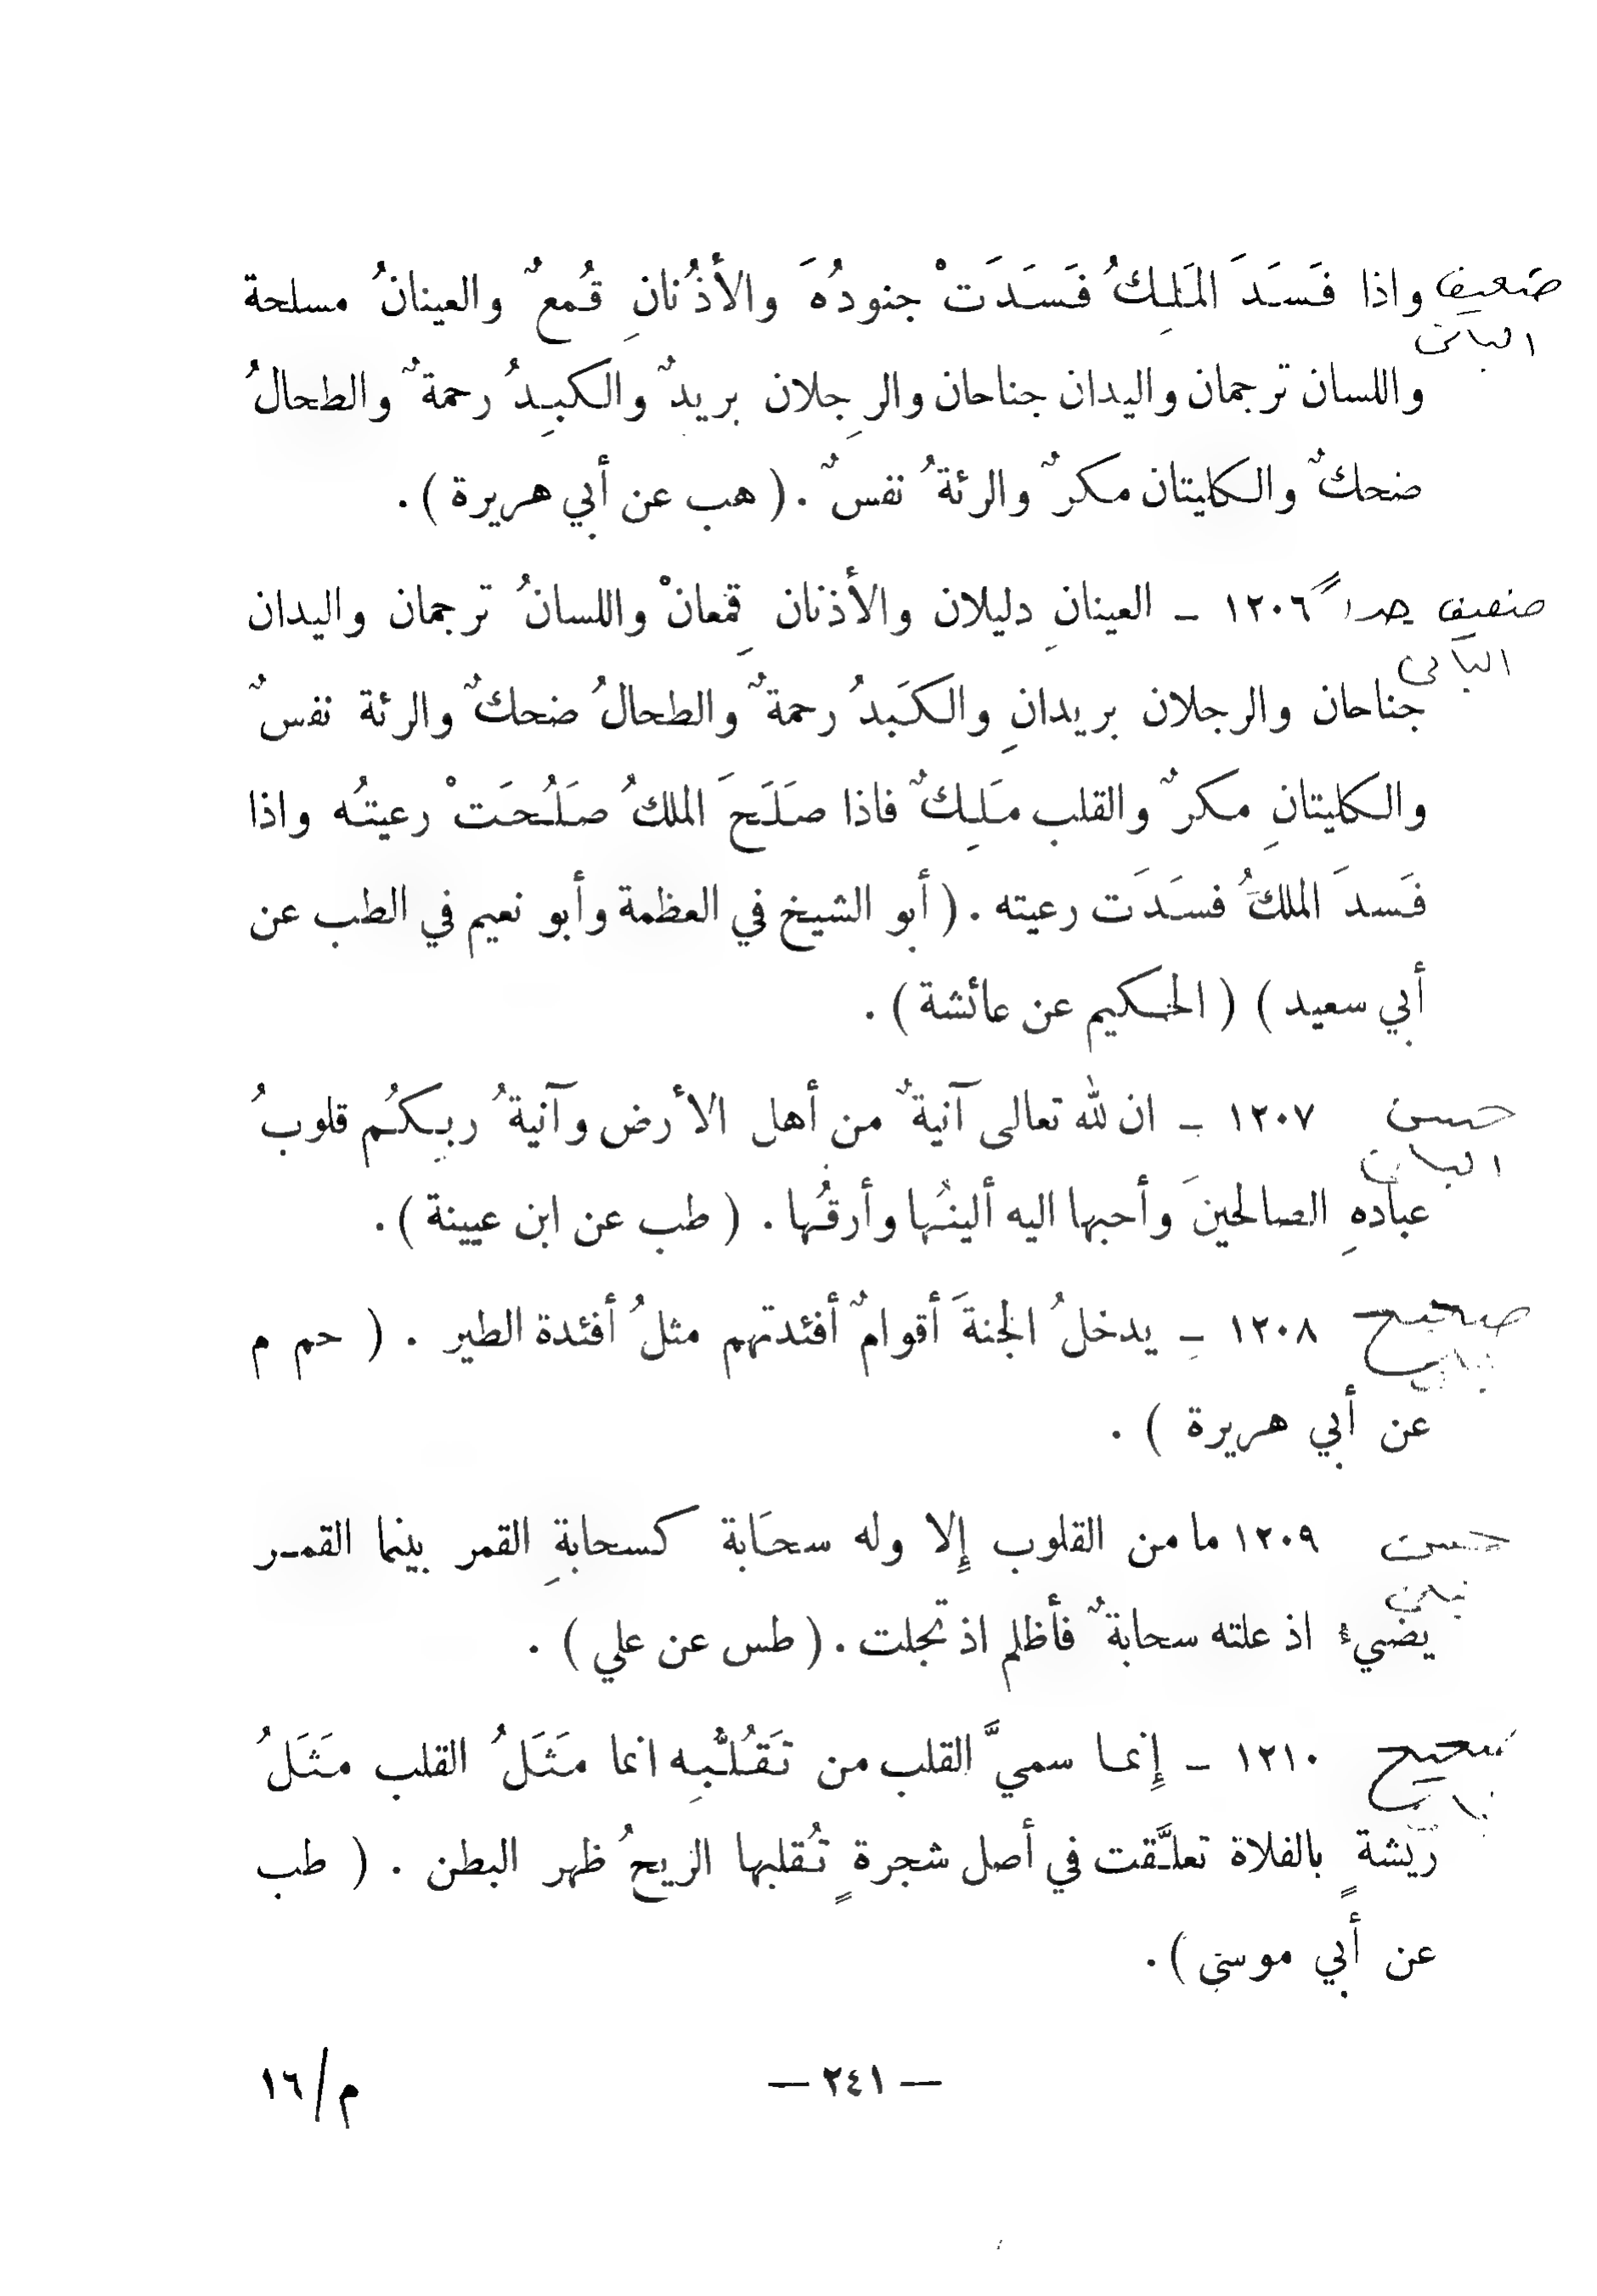 ضعيف واذا فَسَدَ المَلِكُ فَسَدَتْ جنودُهَ والأذُنانِ قُمعٌ والعينانُ مسلحة
البانى
واللسان ترجمان واليدان جناحان والرِجلان بريدٌ والكبِدُ رحمةٌ والطحالُ
ضحكٌ والكليتان مكرٌ والرئةُ نفسٌ . ( هب عن أبي هريرة ) .
ضعيف جداً ١٢٠٦ - العينانِ دليلان والأذنان قِمعانْ واللسانُ ترجمان واليدان
البانى
جناحان والرجلان بريدانِ والكَبدُ رحمةٌ والطحالُ ضحكٌ والرئة نفسٌ
والكليتانِ مكرٌ والقلب مَلِكٌ فاذا صَلَحَ الملكُ صَلُحَتْ رعيتُه واذا
فَسدَ الملكُ فسَدَت رعيته . ( أبو الشيخ في العظمة وأبو نعيم في الطب عن
أبي سعيد ) ( الحكيم عن عائشة ) .
حسن ١٢٠٧ - ان لله تعالى آنيةٌ من أهل الأرض وآنيةُ ربكُم قلوبُ
البانى
عبادهِ الصالحينَ وأحبها اليه ألينُها وأرقُها . ( طب عن ابن عيينة ) .
صحيح ١٢٠٨ - يدخلُ الجنةَ أقوامٌ أفئدتهم مثلُ أفئدة الطير . ( حم م
عن أبي هريرة ) .
حسن ١٢٠٩ ما من القلوب إِلا وله سحَابة كسحابةِ القمر بينما القمر
يضيء اذ علته سحابةٌ فأظلم اذ تجلت . ( طس عن علي ) .
صحيح ١٢١٠ - إِنما سميَّ القلب من تَقُلُّبِه انما مَثَلُ القلب مَثَلُ
ريشةٍ بالفلاة تعلَّقت في أصل شجرةٍ تُقلبها الريحُ ظهر البطن . ( طب
عن أبي موسى ) .
— ٢٤١ —
م/١٦